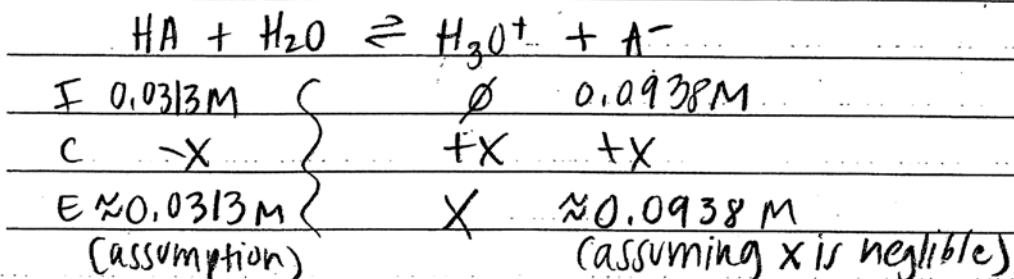 HA + H₂O ⇌ H₃O⁺ + A⁻
I 0.0313M Ø 0.0938M
C -X +X +X
E ≈0.0313M X ≈0.0938M
(assumption) (assuming x is neglible)